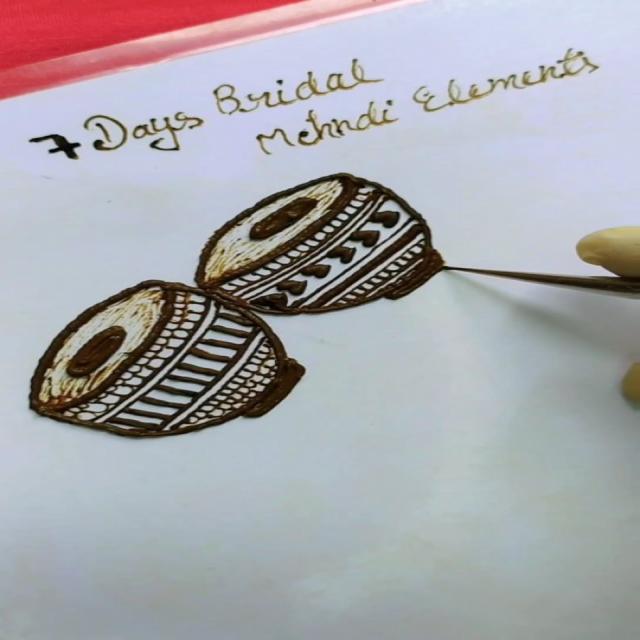 7 Days Bridal
Mehndi Elements